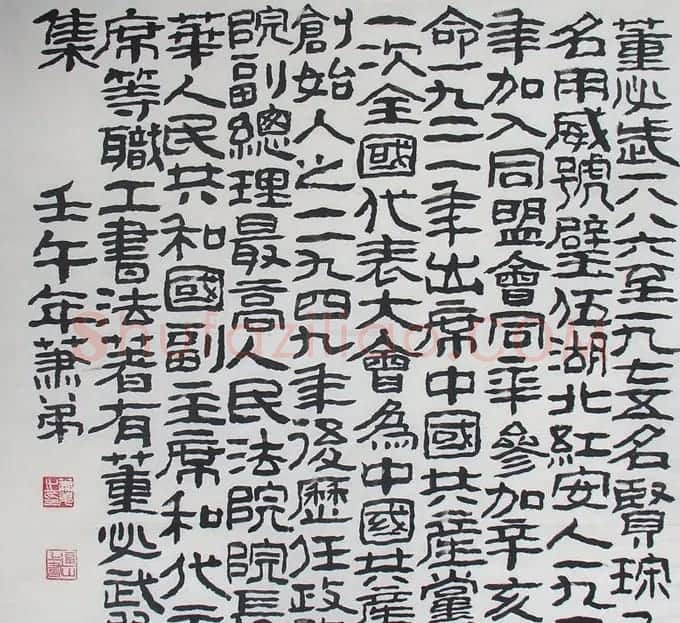 董必武一八八六至一九七五名賢琮
名用威號璧伍湖北紅安人一九一
年加入同盟會同年參加辛亥
命一九二一年出席中國共産黨
一次全國代表大會為中國共産
創始人之一一九四九年後歷任政
院副總理最高人民法院院長
華人民共和國副主席和代
席等職工書法著有董必武
集
壬午年蕭弟
Shufaziliao.COM